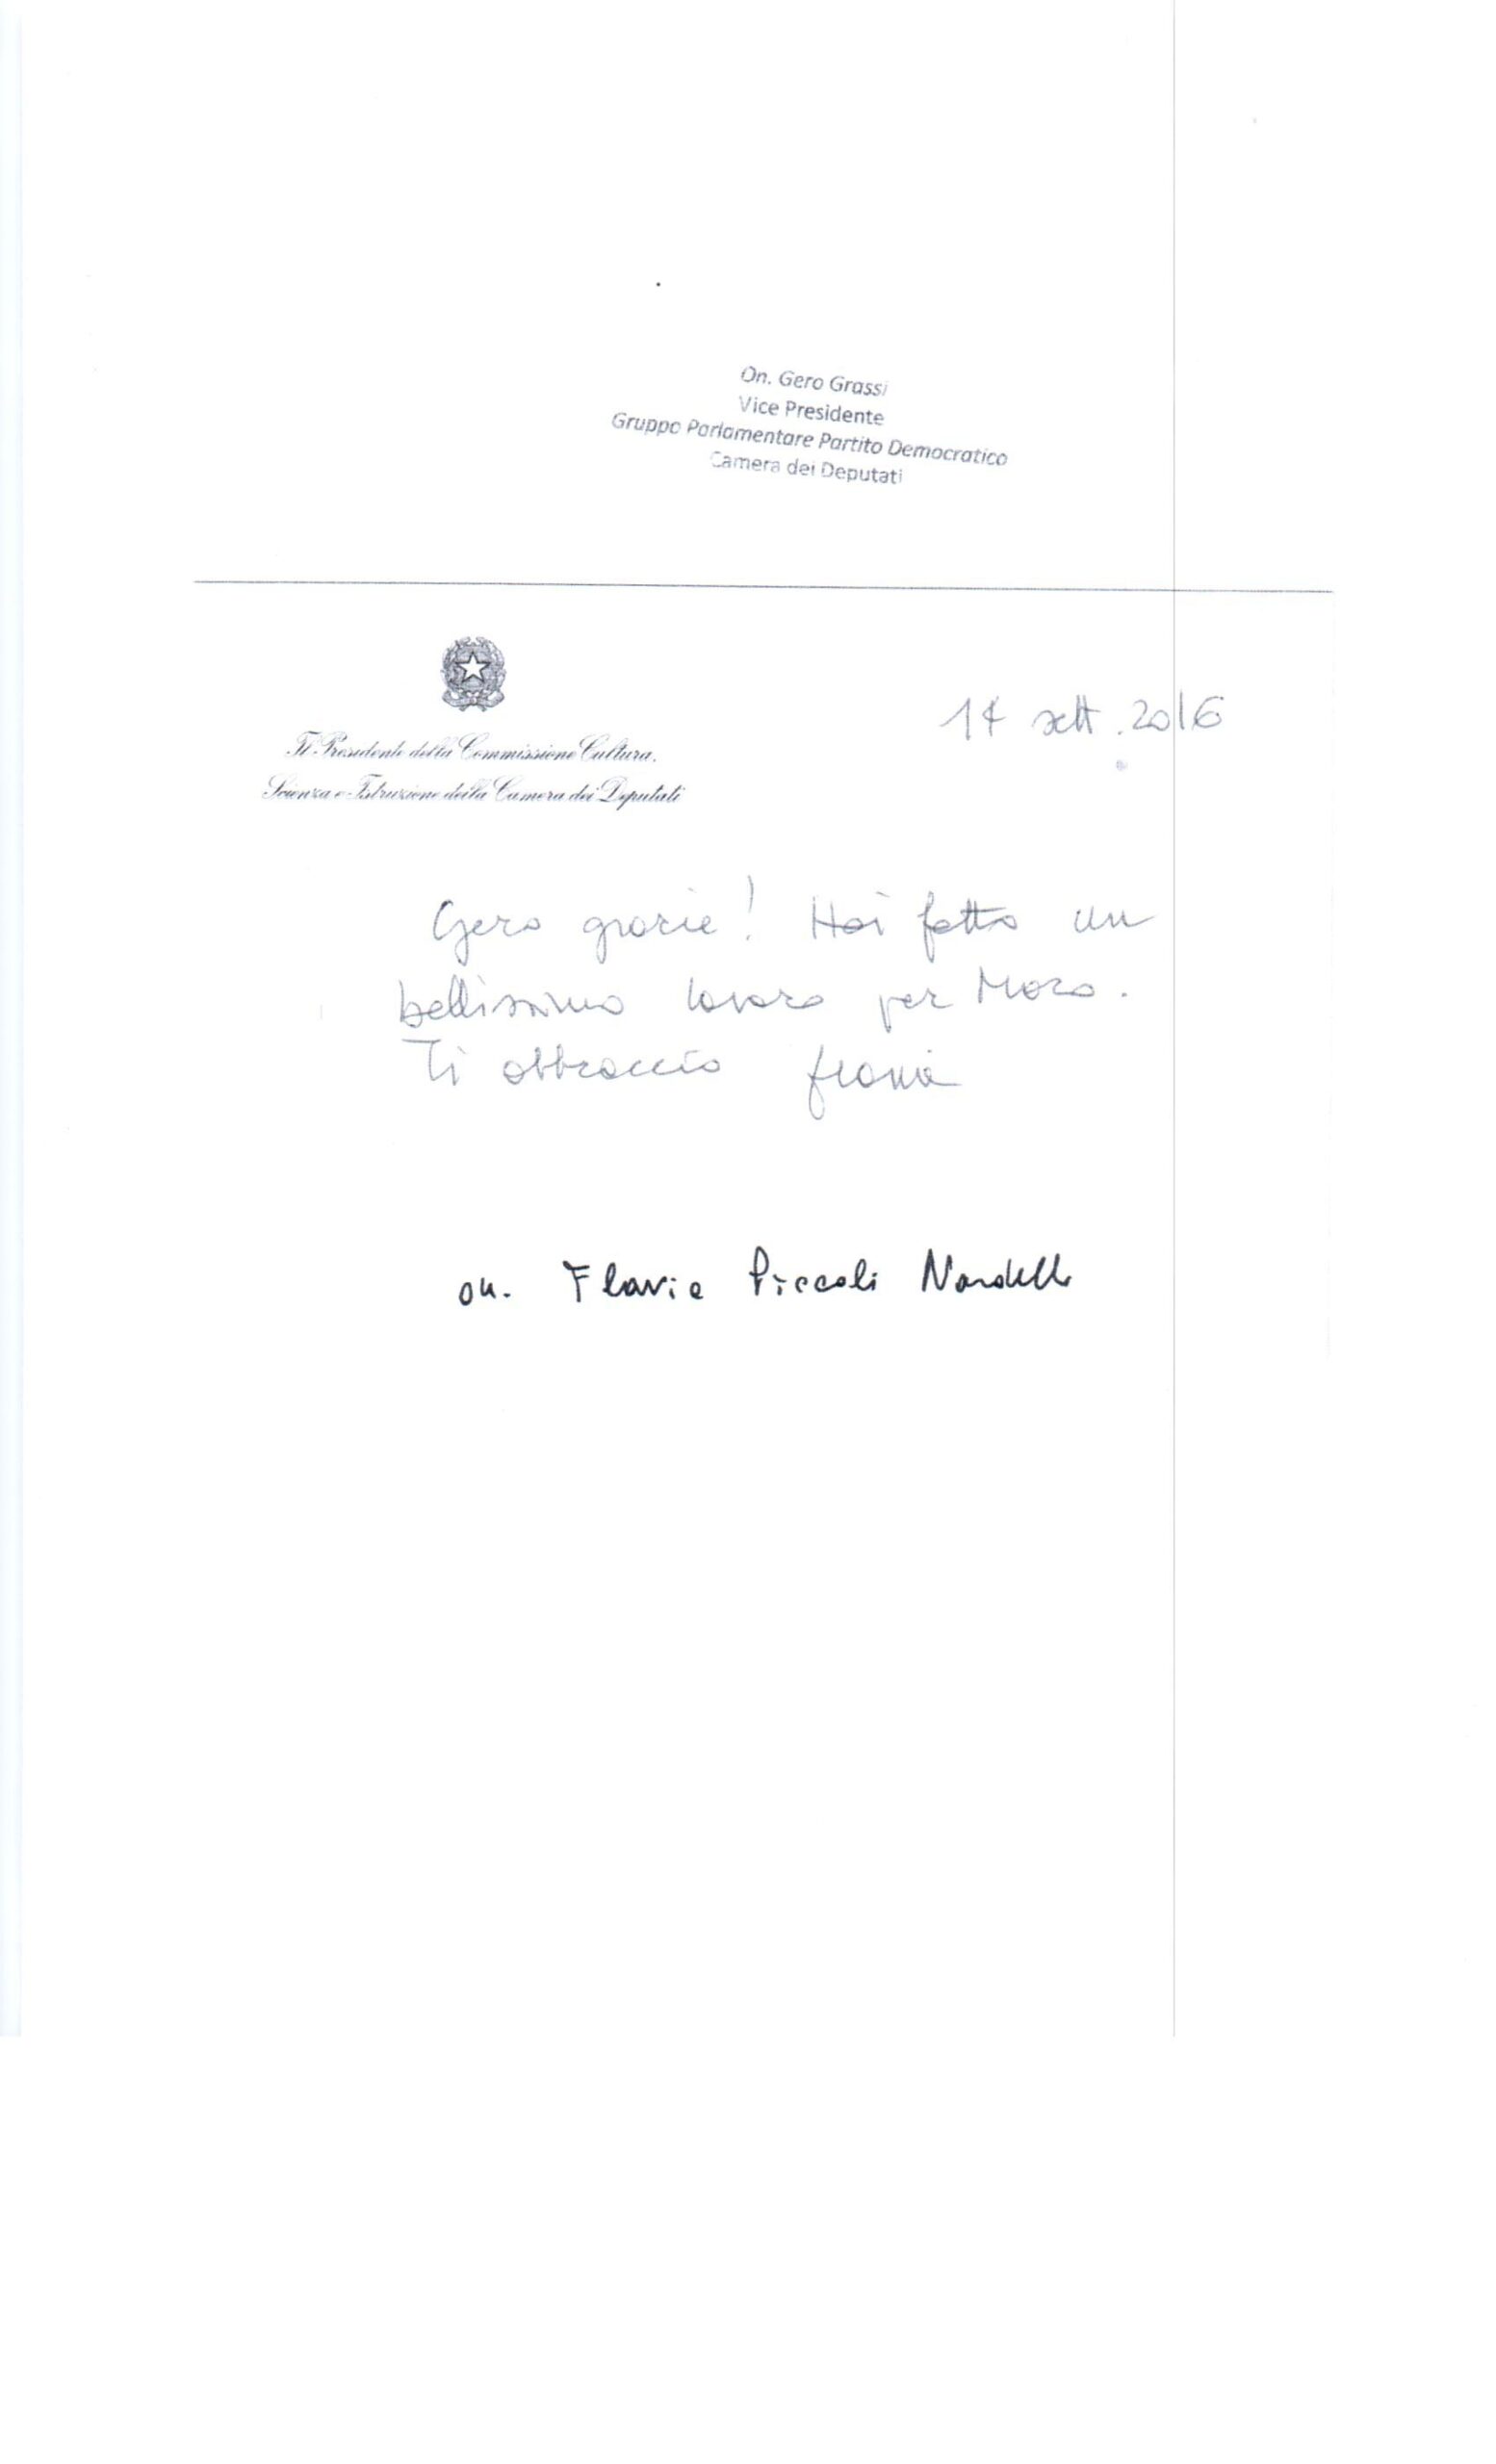 On. Gero Grassi
Vice Presidente
Gruppo Parlamentare Partito Democratico
Camera dei Deputati
Il Presidente della Commissione Cultura,
Scienza e Istruzione della Camera dei Deputati
14 sett. 2016
Gero grazie! Hai fatto un
bellissimo lavoro per Moro.
Ti abbraccio Flavia
on. Flavia Piccoli Nardelli